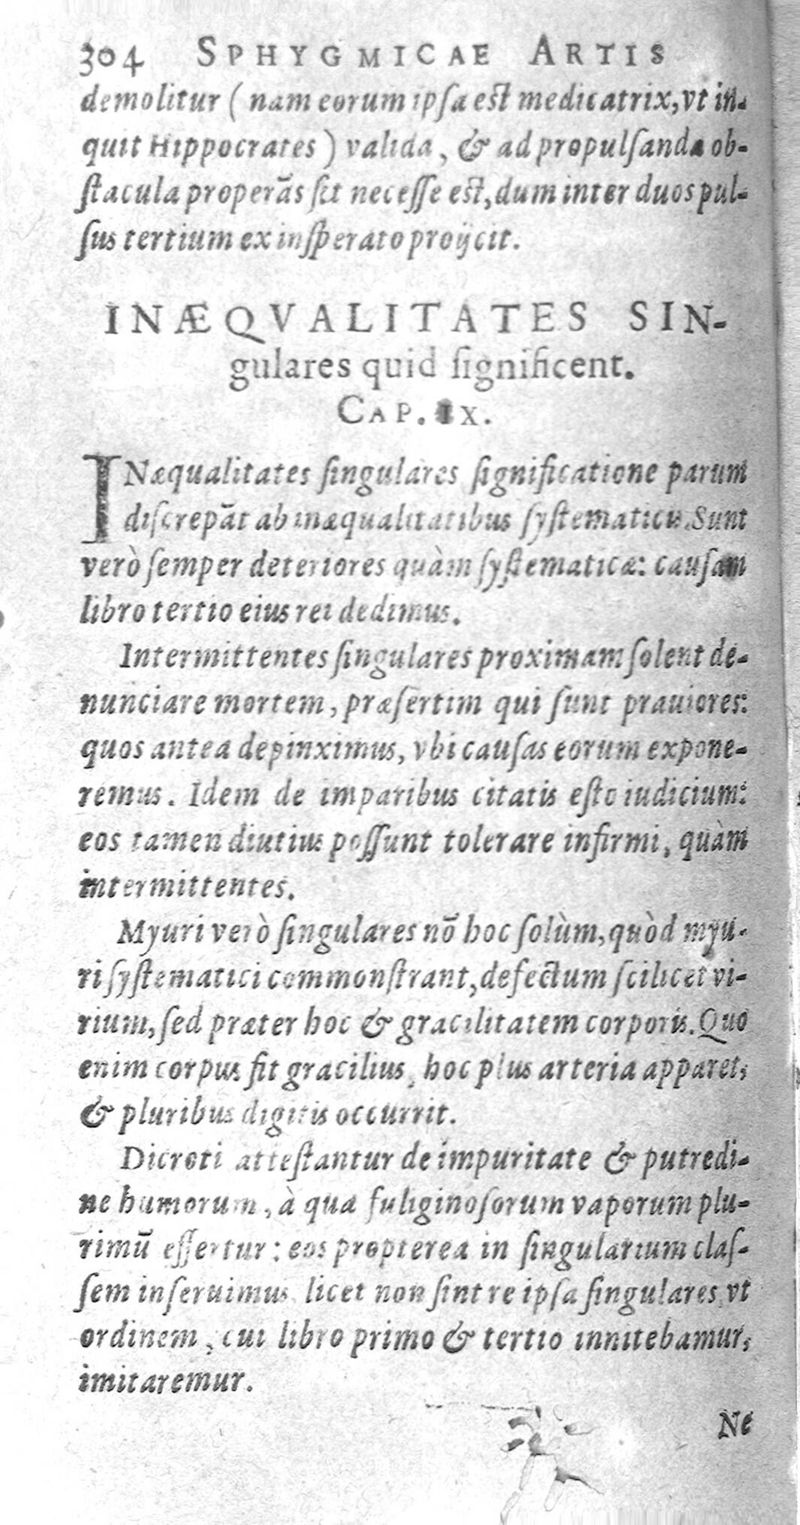 304 SPHYGMICAE ARTIS
demolitur (nam eorum ipſa eſt medicatrix, vt in-
quit Hippocrates) valida, & ad propulſanda ob-
ſtacula properãs ſit neceſſe eſt, dum inter duos pul-
ſus tertium ex inſperato proijcit.
INÆQVALITATES SIN-
gulares quid ſignificent.
CAP. IX.
INæqualitates ſingulares ſignificatione parum
diſcrepãt ab inæqualitatibus ſyſtematicis. Sunt
verò ſemper deteriores quàm ſyſtematicæ: cauſam
libro tertio eius rei dedimus.
Intermittentes ſingulares proximam ſolent de-
nunciare mortem, præſertim qui ſunt prauiores:
quos antea depinximus, vbi cauſas eorum expone-
remus. Idem de imparibus citatis eſto iudicium:
eos tamen diutius poſſunt tolerare infirmi, quàm
intermittentes.
Myuri verò ſingulares nõ hoc ſolùm, quòd myu-
ri ſyſtematici commonſtrant, defectum ſcilicet vi-
rium, ſed præter hoc & gracilitatem corporis. Quo
enim corpus fit gracilius, hoc plus arteria apparet,
& pluribus digitis occurrit.
Dicroti atteſtantur de impuritate & putredi-
ne humorum, à qua fuliginoſorum vaporum plu-
rimũ effertur: eos propterea in ſingularium claſ-
ſem inſeruimus licet non ſint re ipſa ſingulares, vt
ordinem, cui libro primo & tertio innitebamur,
imitaremur.
Ne